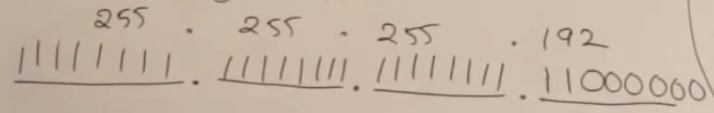 255 . 255 . 255 . 192
11111111 . 11111111 . 11111111 . 11000000